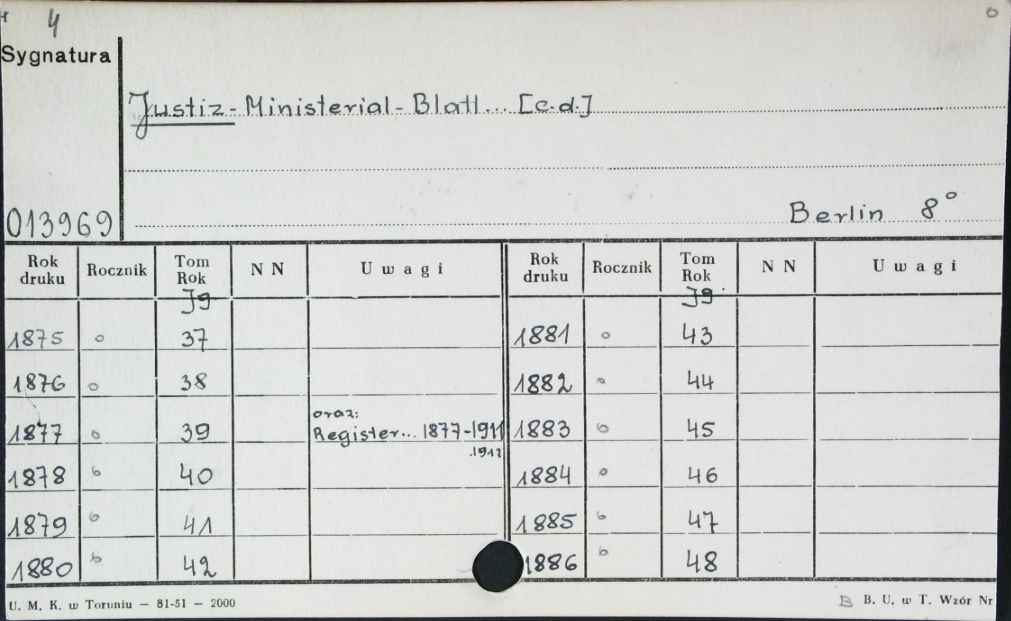 4
Sygnatura
Justiz-Ministerial-Blatt... [c.d.]
013969
Berlin 8°
Rok druku Rocznik Tom Rok N N Uwagi Rok druku Rocznik Tom Rok N N Uwagi
Jg Jg
1875 o 37 1881 o 43
1876 o 38 1882 o 44
1877 o 39 oraz: Register... 1877-1911 .1912 1883 o 45
1878 o 40 1884 o 46
1879 o 41 1885 o 47
1880 o 42 1886 o 48
U. M. K. w Toruniu — 81-51 — 2000 B. U. w T. Wzór Nr